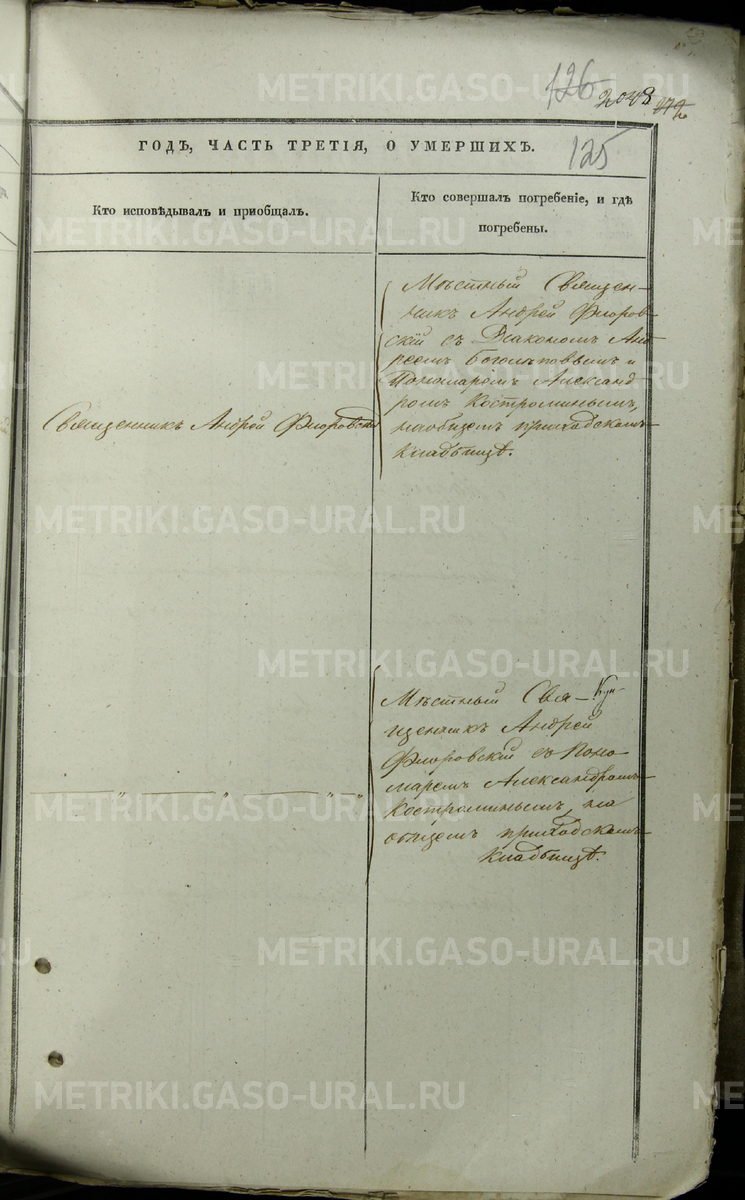 126
204 8
172
125
ГОДЪ, ЧАСТЬ ТРЕТІЯ, О УМЕРШИХЪ.
Кто исповѣдывалъ и приобщалъ.
Кто совершалъ погребеніе, и гдѣ
погребены.
Священникъ Андрей Флоровскій
Мѣстный Священ-
никъ Андрей Флоров-
скій съ Діакономъ Анд
реемъ Боголѣповымъ и
Пономаремъ Александ
ромъ Костроминымъ,
на общемъ приходскомъ
кладбищѣ.
Мѣстный Свя-
щенникъ Андрей
Флоровскій съ Поно
маремъ Александромъ
Костроминымъ, на
общемъ приходскомъ
кладбищѣ.
METRIKI.GASO-URAL.RU